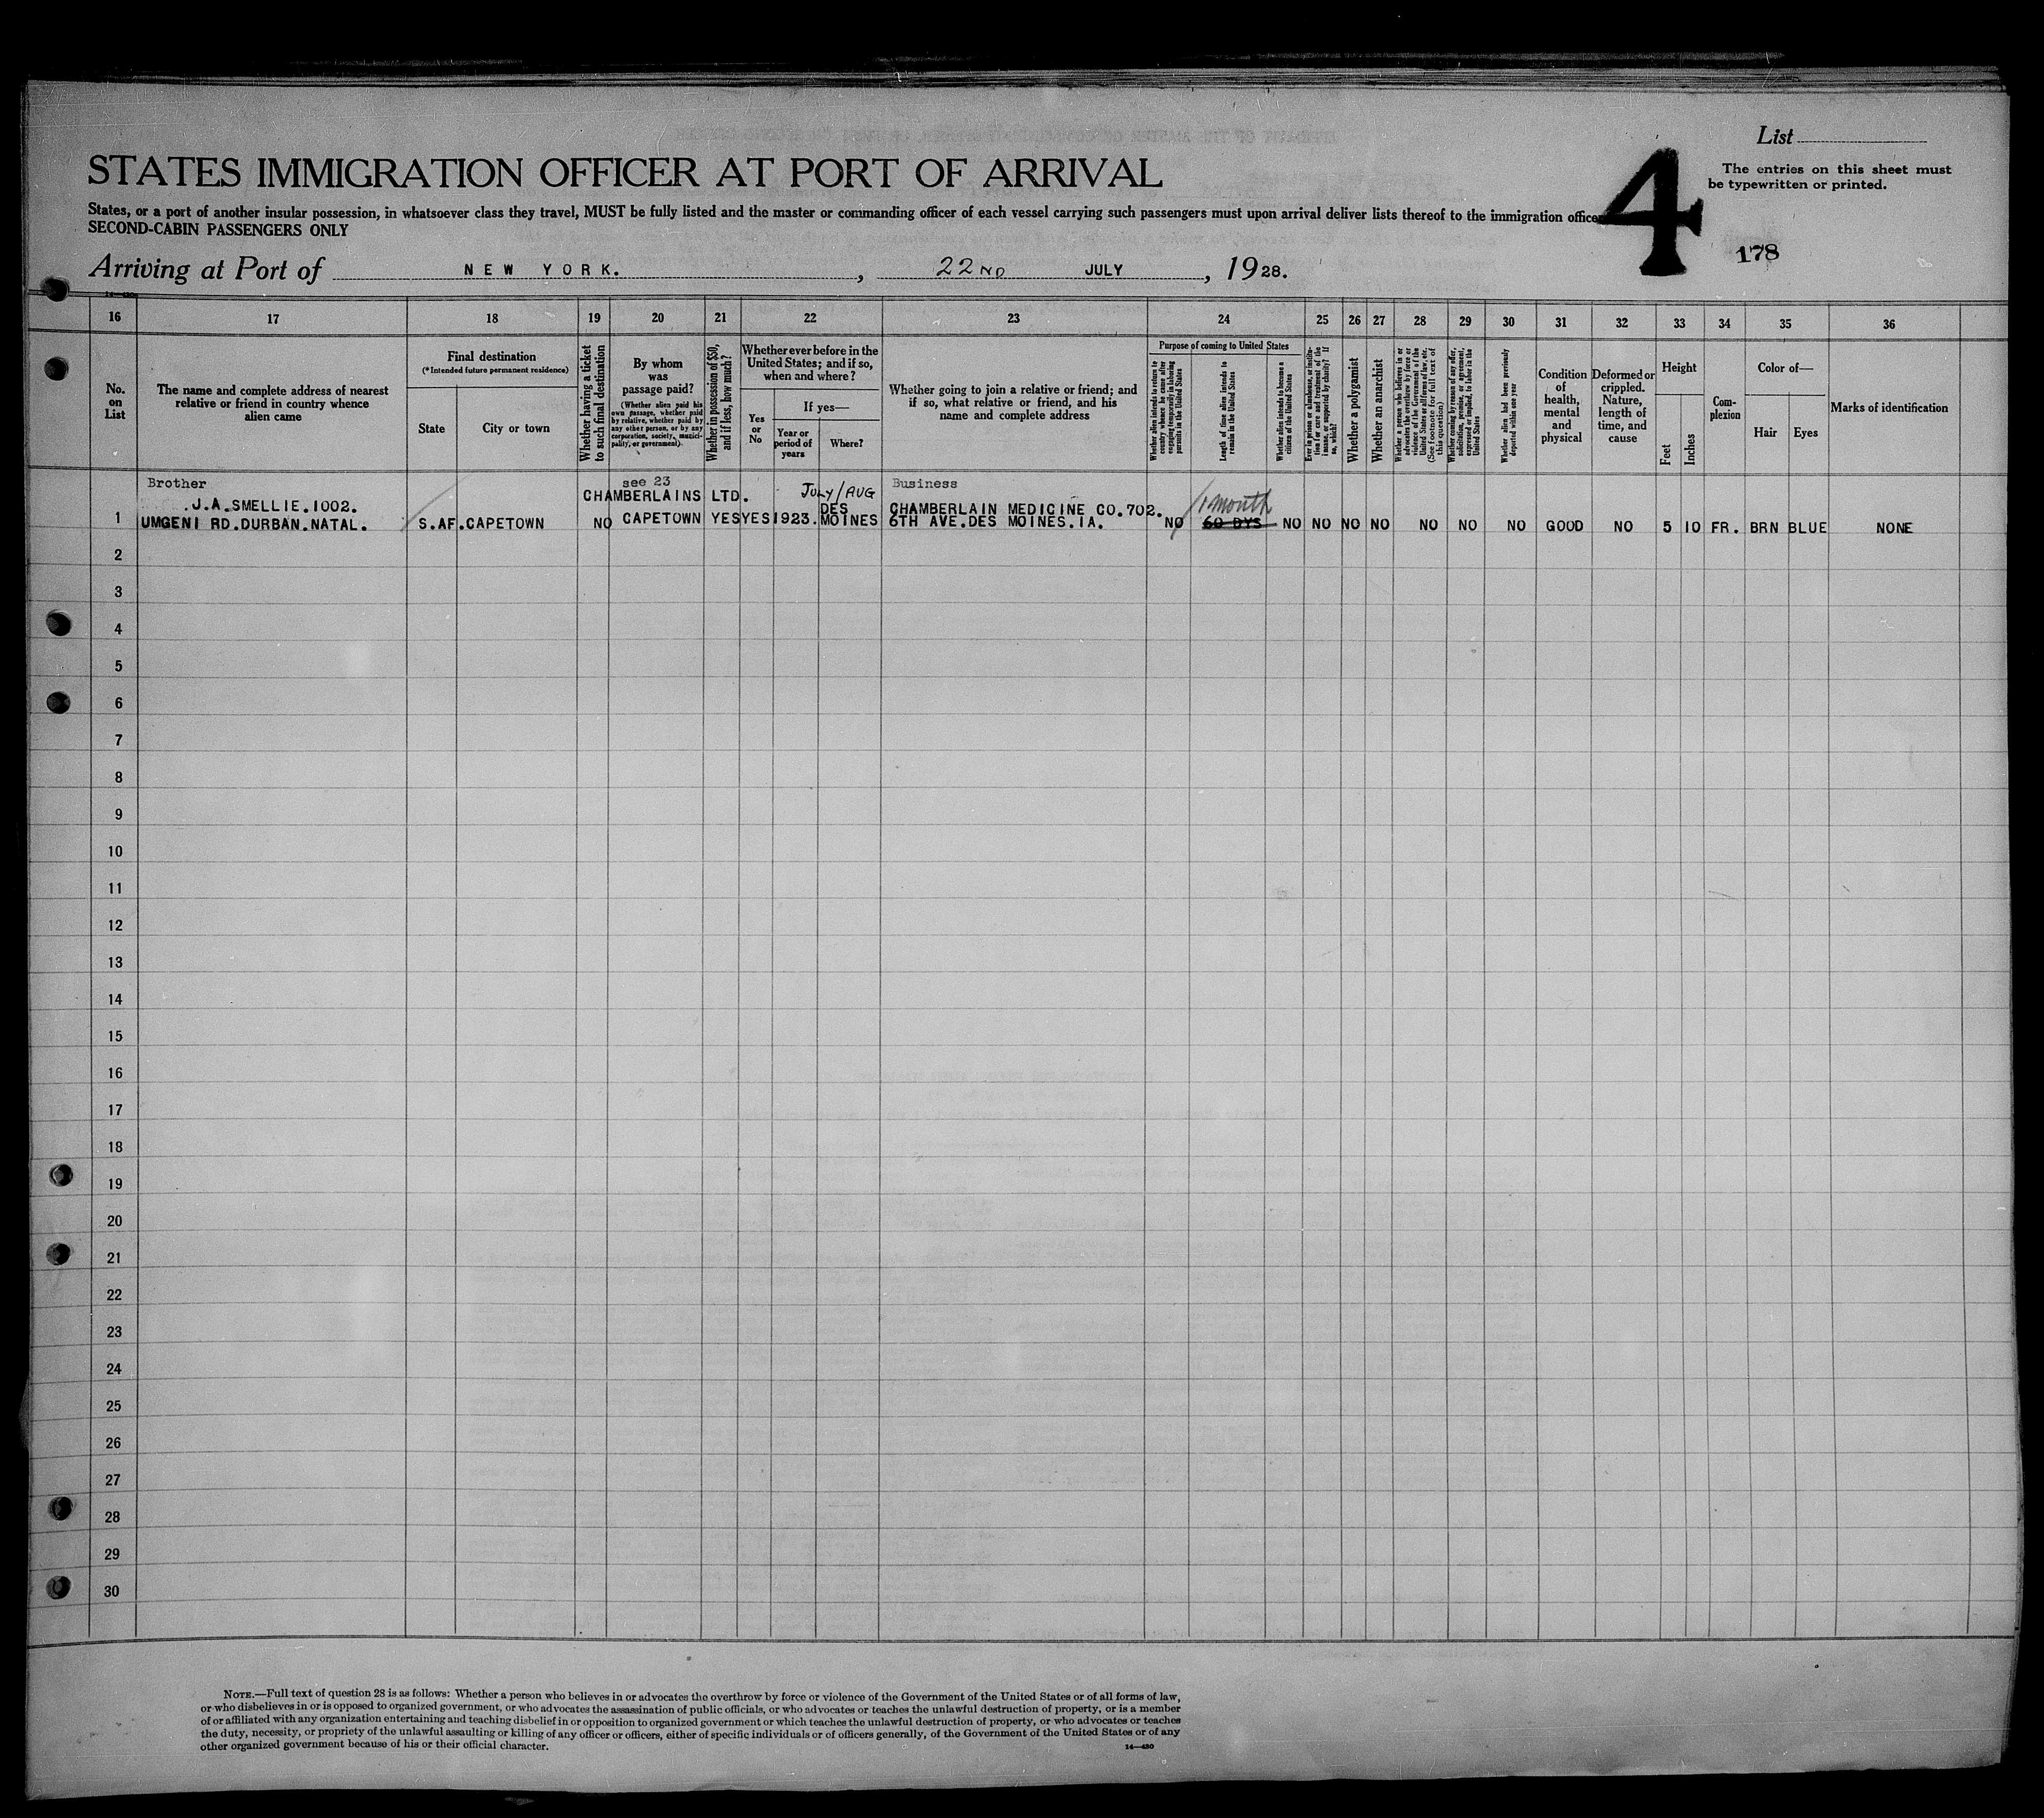 List
The entries on this sheet must
be typewritten or printed.
4
178
STATES IMMIGRATION OFFICER AT PORT OF ARRIVAL
States, or a port of another insular possession, in whatsoever class they travel, MUST be fully listed and the master or commanding officer of each vessel carrying such passengers must upon arrival deliver lists thereof to the immigration officer
SECOND-CABIN PASSENGERS ONLY
Arriving at Port of NEW YORK. , 22ND JULY , 1928.
16 17 18 19 20 21 22 23 24 25 26 27 28 29 30 31 32 33 34 35 36
No.
on
List
The name and complete address of nearest
relative or friend in country whence
alien came
Final destination
(*Intended future permanent residence)
State
City or town
Whether having a ticket
to such final destination
By whom
was
passage paid?
(Whether alien paid his
own passage, whether paid
by relative, whether paid by
any other person, or by any
corporation, society, munici-
pality, or government)
Whether in possession of $50,
and if less, how much?
Whether ever before in the
United States; and if so,
when and where?
Yes
or
No
If yes—
Year or
period of
years
Where?
Whether going to join a relative or friend; and
if so, what relative or friend, and his
name and complete address
Purpose of coming to United States
Whether alien intends to return to
country whence he came after
engaging temporarily in laboring
pursuits in the United States
Length of time alien intends to
remain in the United States
Whether alien intends to become a
citizen of the United States
Ever in prison or almshouse, or institu-
tion for care and treatment of the
insane, or supported by charity? If
so, which?
Whether a polygamist
Whether an anarchist
Whether a person who believes in or
advocates the overthrow by force or
violence of the Government of the
United States or all forms of law, etc.
(See footnote for full text of
this question)
Whether coming by reason of any offer,
solicitation, promise, or agreement,
expressed or implied, to labor in the
United States
Whether alien had been previously
deported within one year
Condition
of
health,
mental
and
physical
Deformed or
crippled.
Nature,
length of
time, and
cause
Height
Feet
Inches
Com-
plexion
Color of—
Hair
Eyes
Marks of identification
Brother see 23 Business
.J.A.SMELLIE.1002. CHAMBERLAINS LTD. JULY/AUG DES CHAMBERLAIN MEDICINE CO.702. 1 month
1 UMGENI RD.DURBAN.NATAL. S.AF. CAPETOWN NO CAPETOWN YES YES 1923. MOINES 6TH AVE.DES MOINES.IA. NO 60 DYS NO NO NO NO NO NO NO GOOD NO 5 10 FR. BRN BLUE NONE
2
3
4
5
6
7
8
9
10
11
12
13
14
15
16
17
18
19
20
21
22
23
24
25
26
27
28
29
30
NOTE.—Full text of question 28 is as follows: Whether a person who believes in or advocates the overthrow by force or violence of the Government of the United States or of all forms of law,
or who disbelieves in or is opposed to organized government, or who advocates the assassination of public officials, or who advocates or teaches the unlawful destruction of property, or is a member
of or affiliated with any organization entertaining and teaching disbelief in or opposition to organized government or which teaches the unlawful destruction of property, or who advocates or teaches
the duty, necessity, or propriety of the unlawful assaulting or killing of any officer or officers, either of specific individuals or of officers generally, of the Government of the United States or of any
other organized government because of his or their official character.
14—430